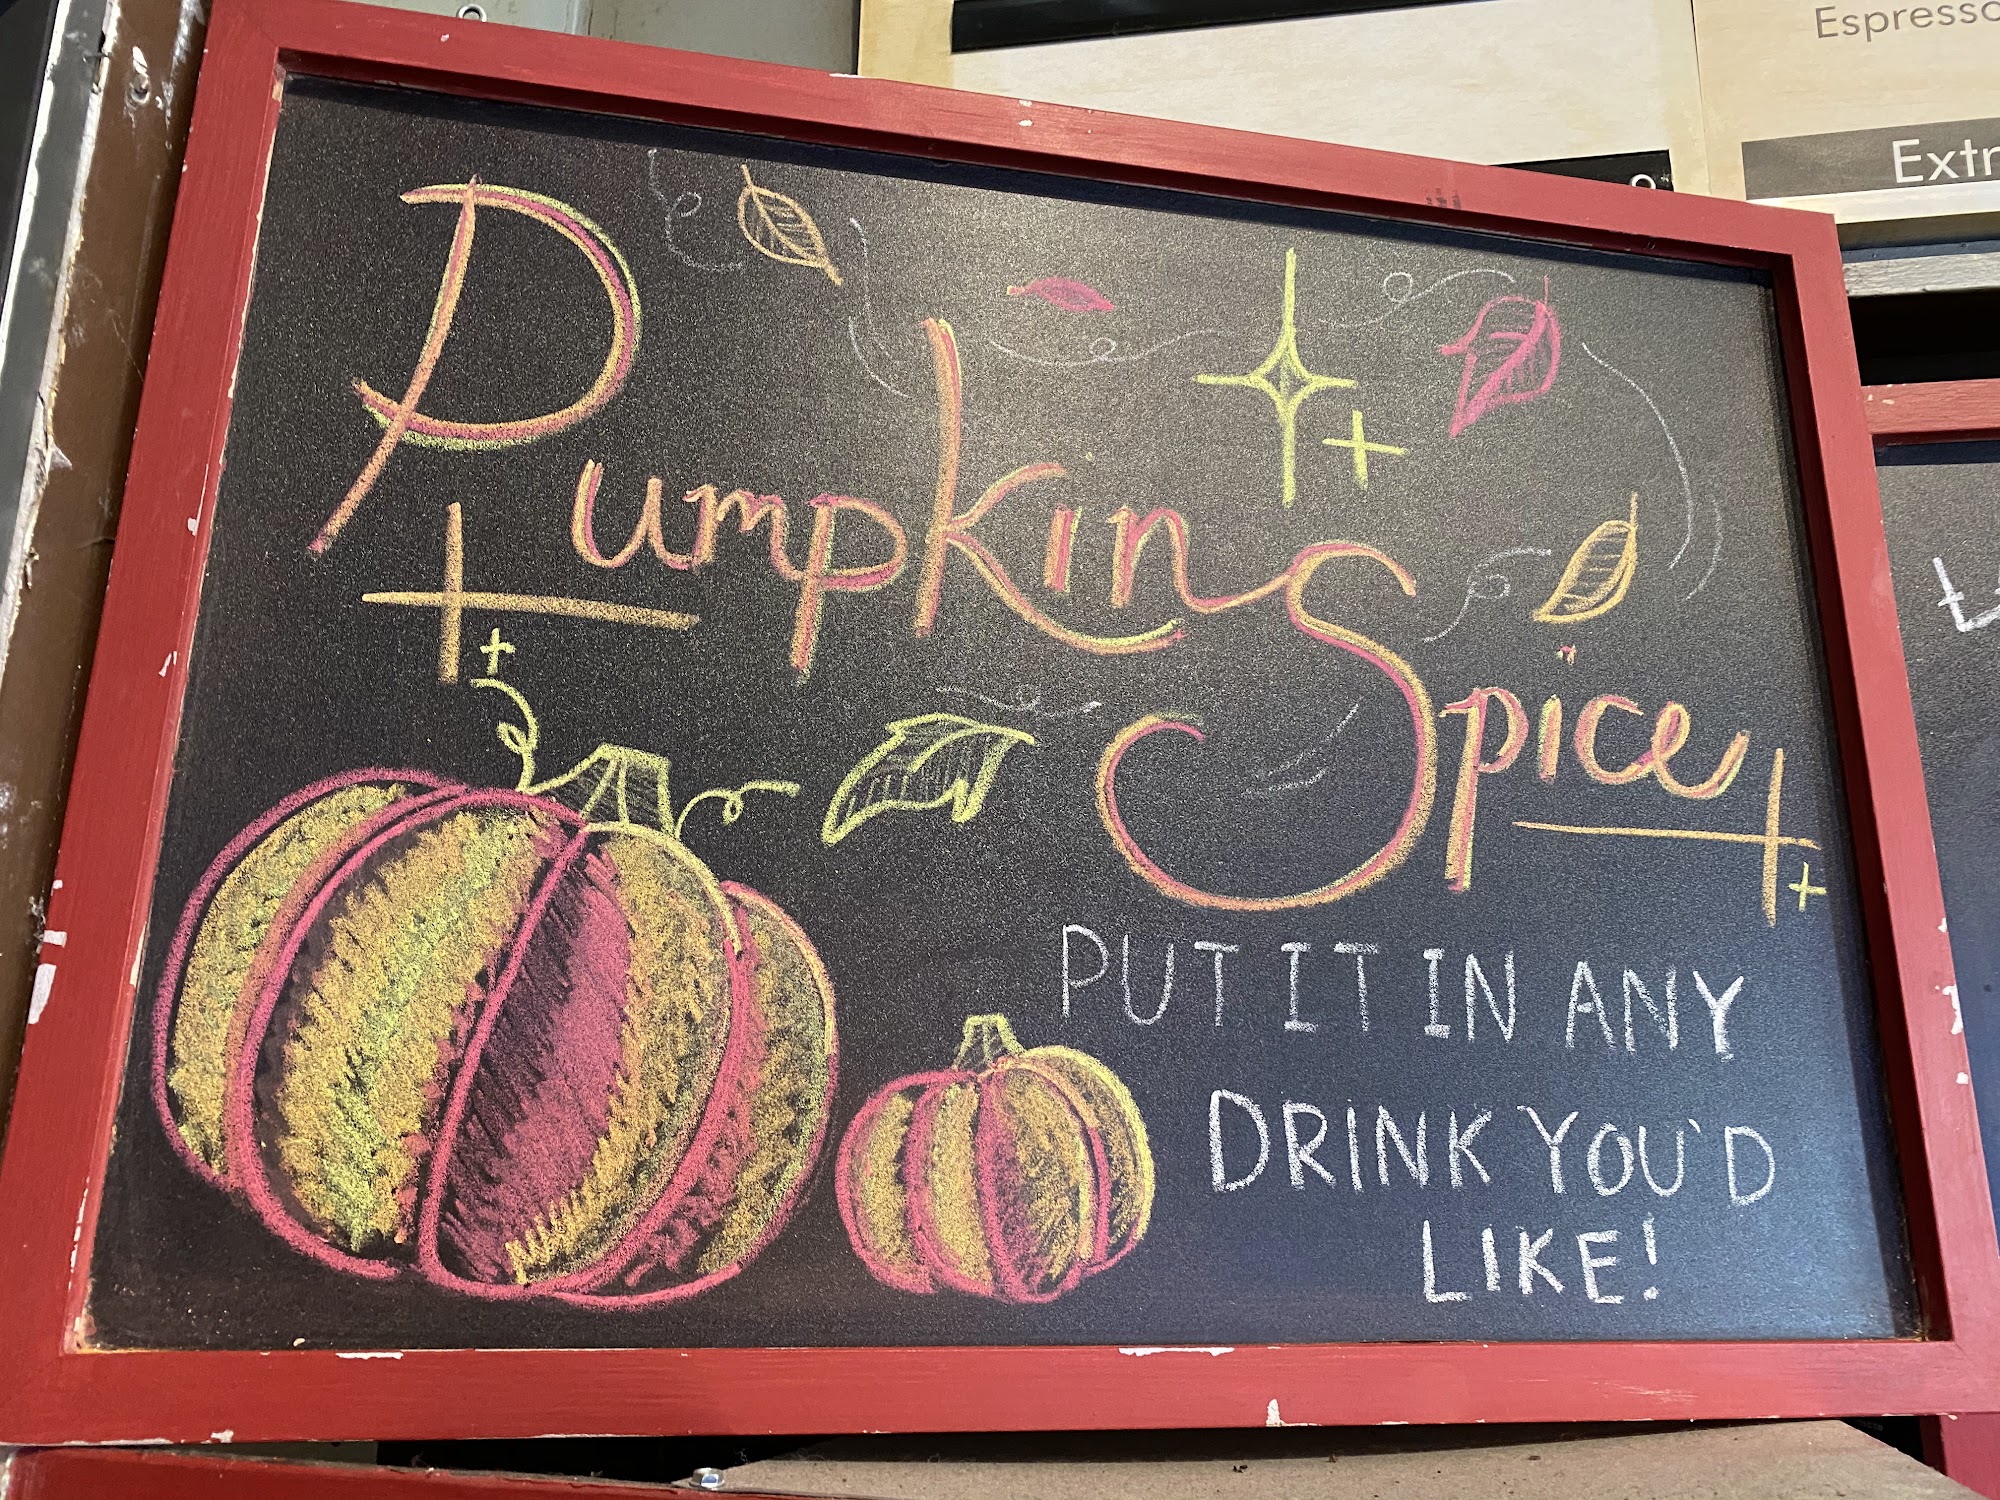 Espresso
Extr
Pumpkin
Spice
PUT IT IN ANY
DRINK YOU'D
LIKE!